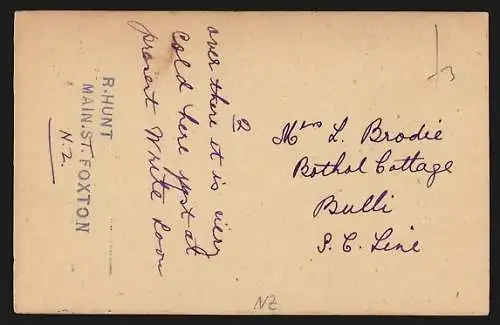 2
over there it is very
Cold here just at
present Write Soon
Mrs L. Brodie
Bothol Cottage
Bulli
S. C. Line
R. HUNT
MAIN. ST. FOXTON
N. Z.
NZ
3